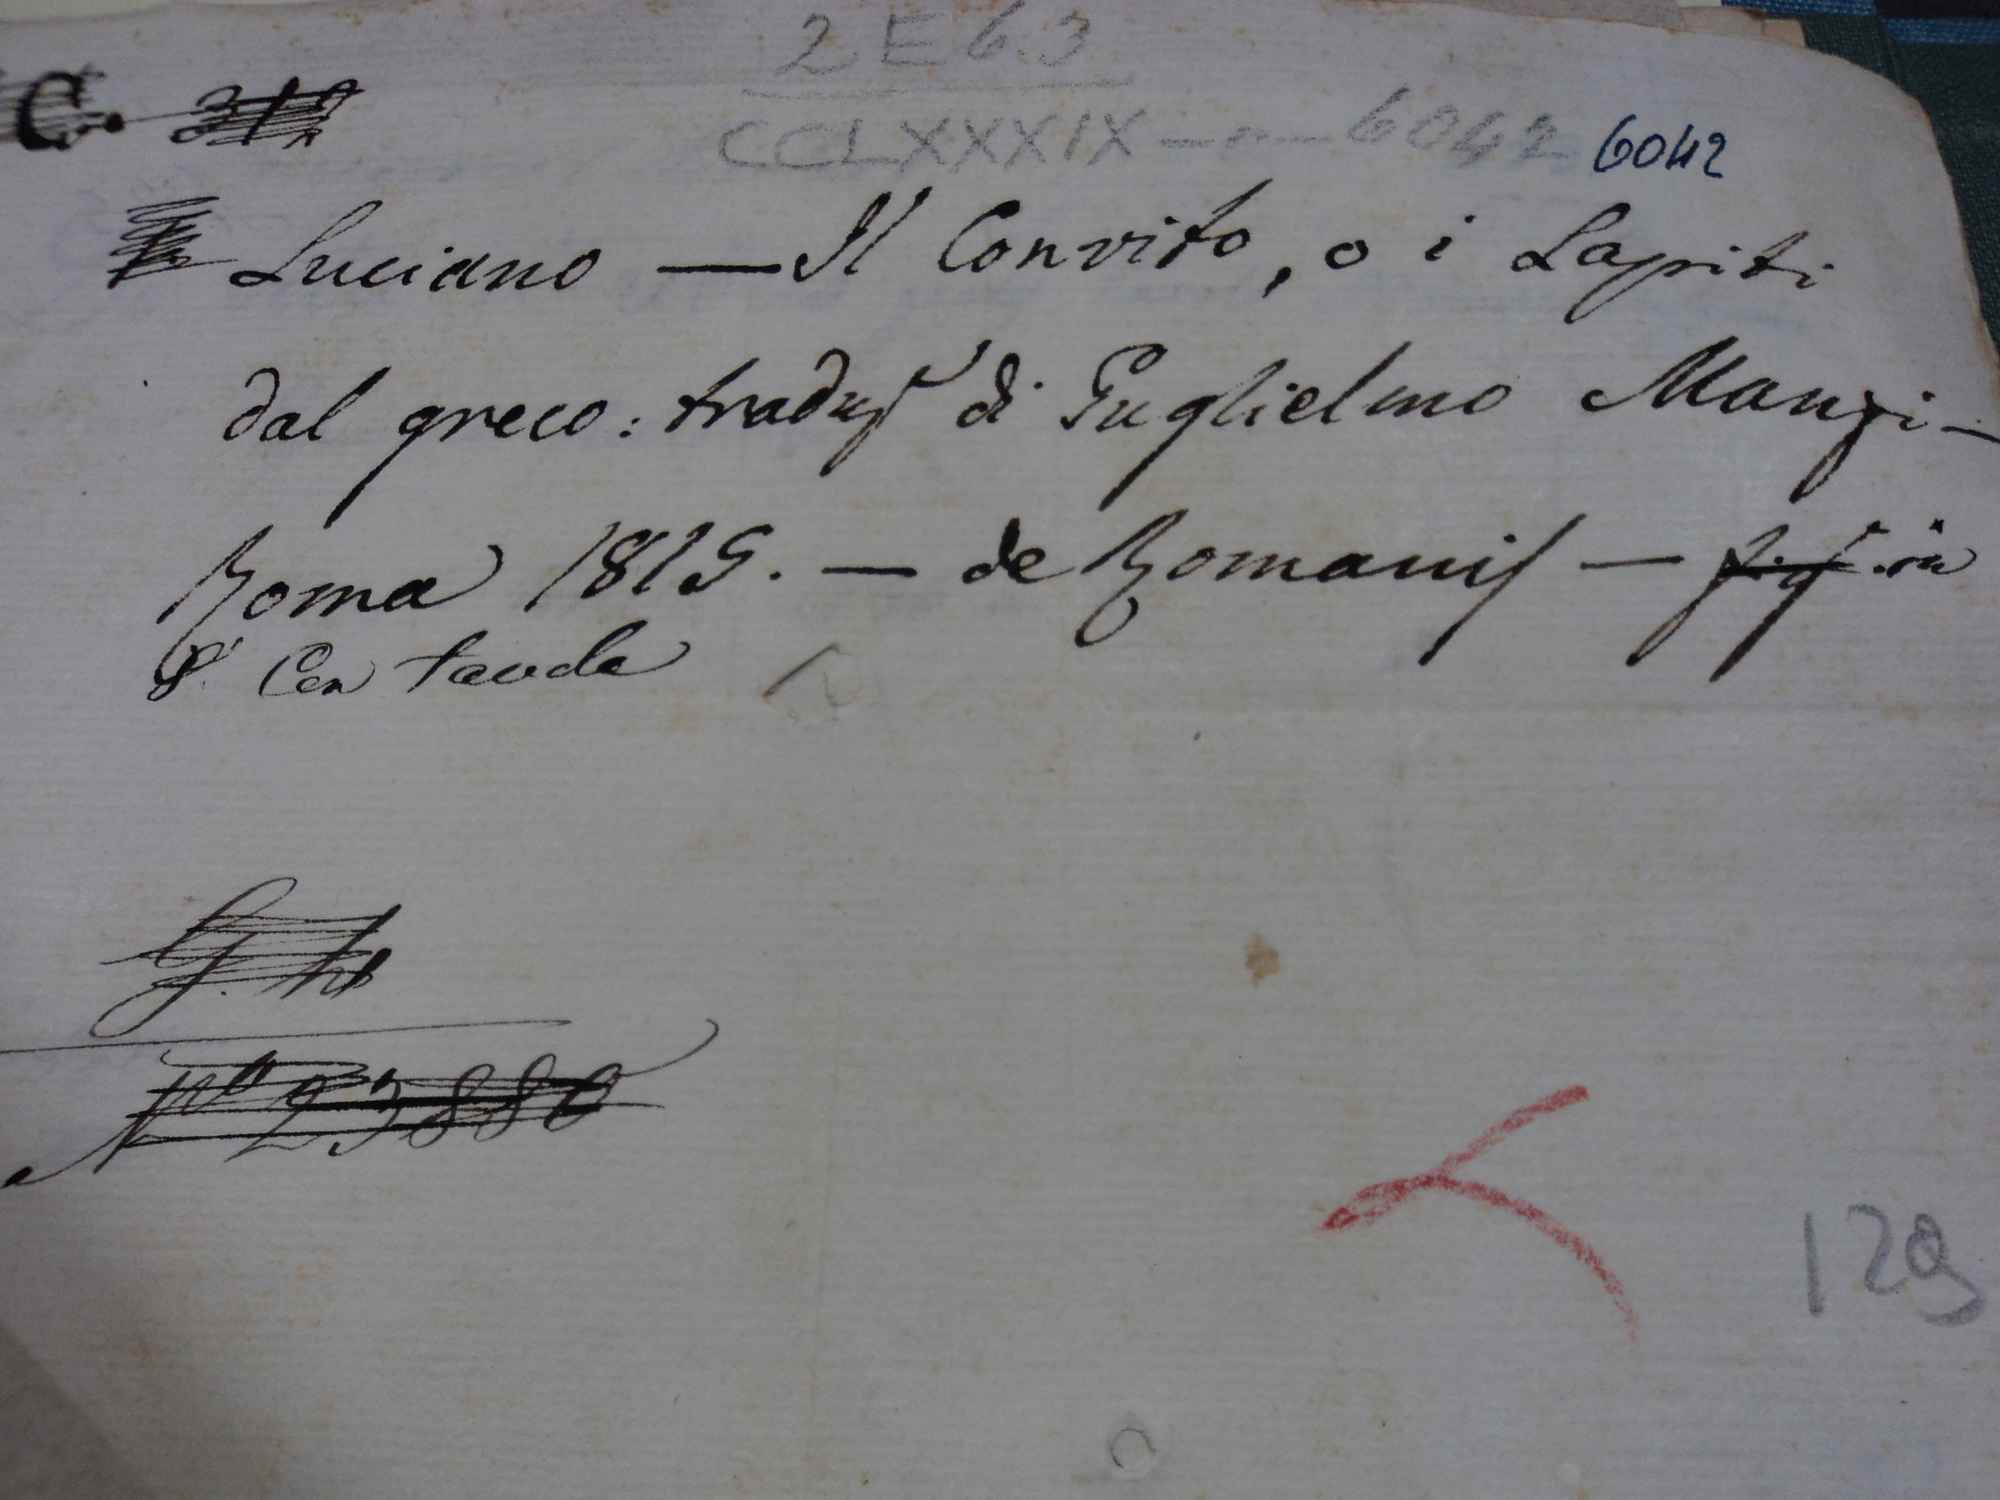 2 E 6.3
C. 
CCLXXXIX — 6042 6042
Luciano — Il Convito, o i Lapiti
dal greco: traduz.e di Guglielmo Manzi —
Roma 1819. — de Romanis — in
8.° Con tavole
N.° 23880
129